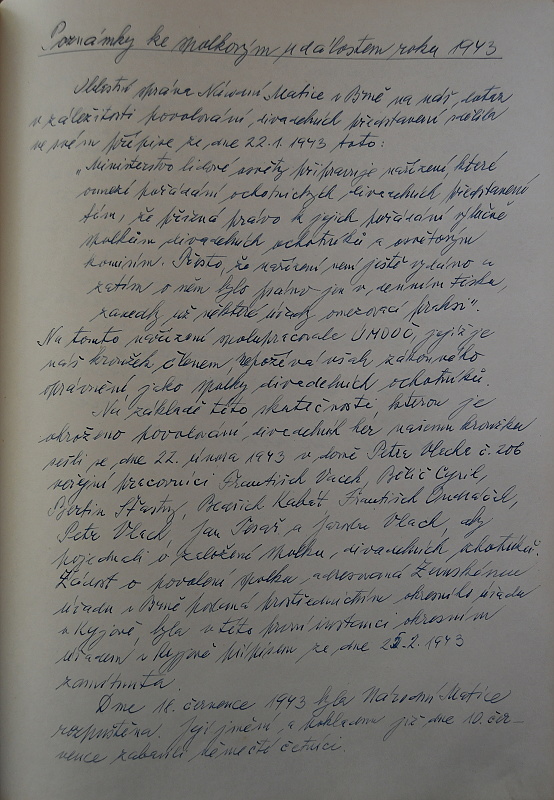 Poznámky ke spolkovým událostem roku 1943
Ústřední správa Národní Matice v Brně na náš dotaz
v záležitosti povolování divadelních představení sdělila
ve svém přípise ze dne 22.1.1943 toto:
„Ministerstvo lidové osvěty připravuje nařízení, které
omezí pořádání ochotnických divadelních představení
tím, že přizná právo k jejich pořádání výlučně
spolkům divadelních ochotníků a osvětovým
komisím. Přesto, že nařízení není ještě vydáno a
zatím o něm bylo psáno jen v denním tisku,
zavedly už některé úřady omezovací praksi".
Na tomto nařízení spolupracovala ÚMDOČ, jejíž je
náš kroužek členem, nepožívá však zákonného
oprávnění jako spolky divadelních ochotníků.
Na základě této skutečnosti, kterou je
ohroženo povolování divadelních her našemu kroužku
sešli se dne 22. února 1943 v domě Petra Vlacha č. 206
veřejní pracovníci František Vacek, Bělič Cyril,
Bertin Šťastný, Bedřich Kabát, František Ondračel,
Petr Vlach, Jan Tesař a Jaroslav Vlach, aby
pojednali o založení spolku divadelních ochotníků.
Žádost o povolení spolku, adresovaná Zemskému
úřadu v Brně podaná prostřednictvím okresního úřadu
v Kyjově, byla v této první instanci okresním
úřadem v Kyjově přípisem ze dne 25.2.1943
zamítnuta.
Dne 12. července 1943 byla Národní Matice
rozpuštěna. Její jmění, a pokladnu již dne 10. čer-
vence zabavili němečtí četníci.